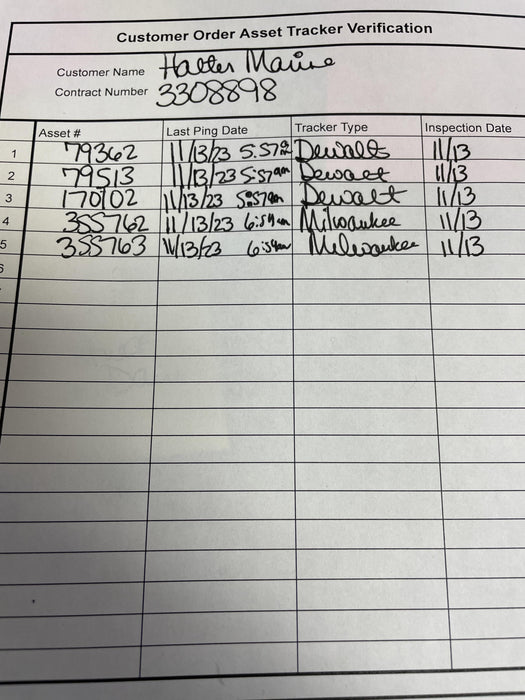 Customer Order Asset Tracker Verification
Customer Name Hatter Maine
Contract Number 3308898
Asset # Last Ping Date Tracker Type Inspection Date
1 79362 11/13/23 5:57am Dewalt 11/13
2 79513 11/13/23 5:57am Dewalt 11/13
3 170102 11/13/23 5:57am Dewalt 11/13
4 355762 11/13/23 Milwaukee 11/13
5 355763 11/13/23 Milwaukee 11/13
6